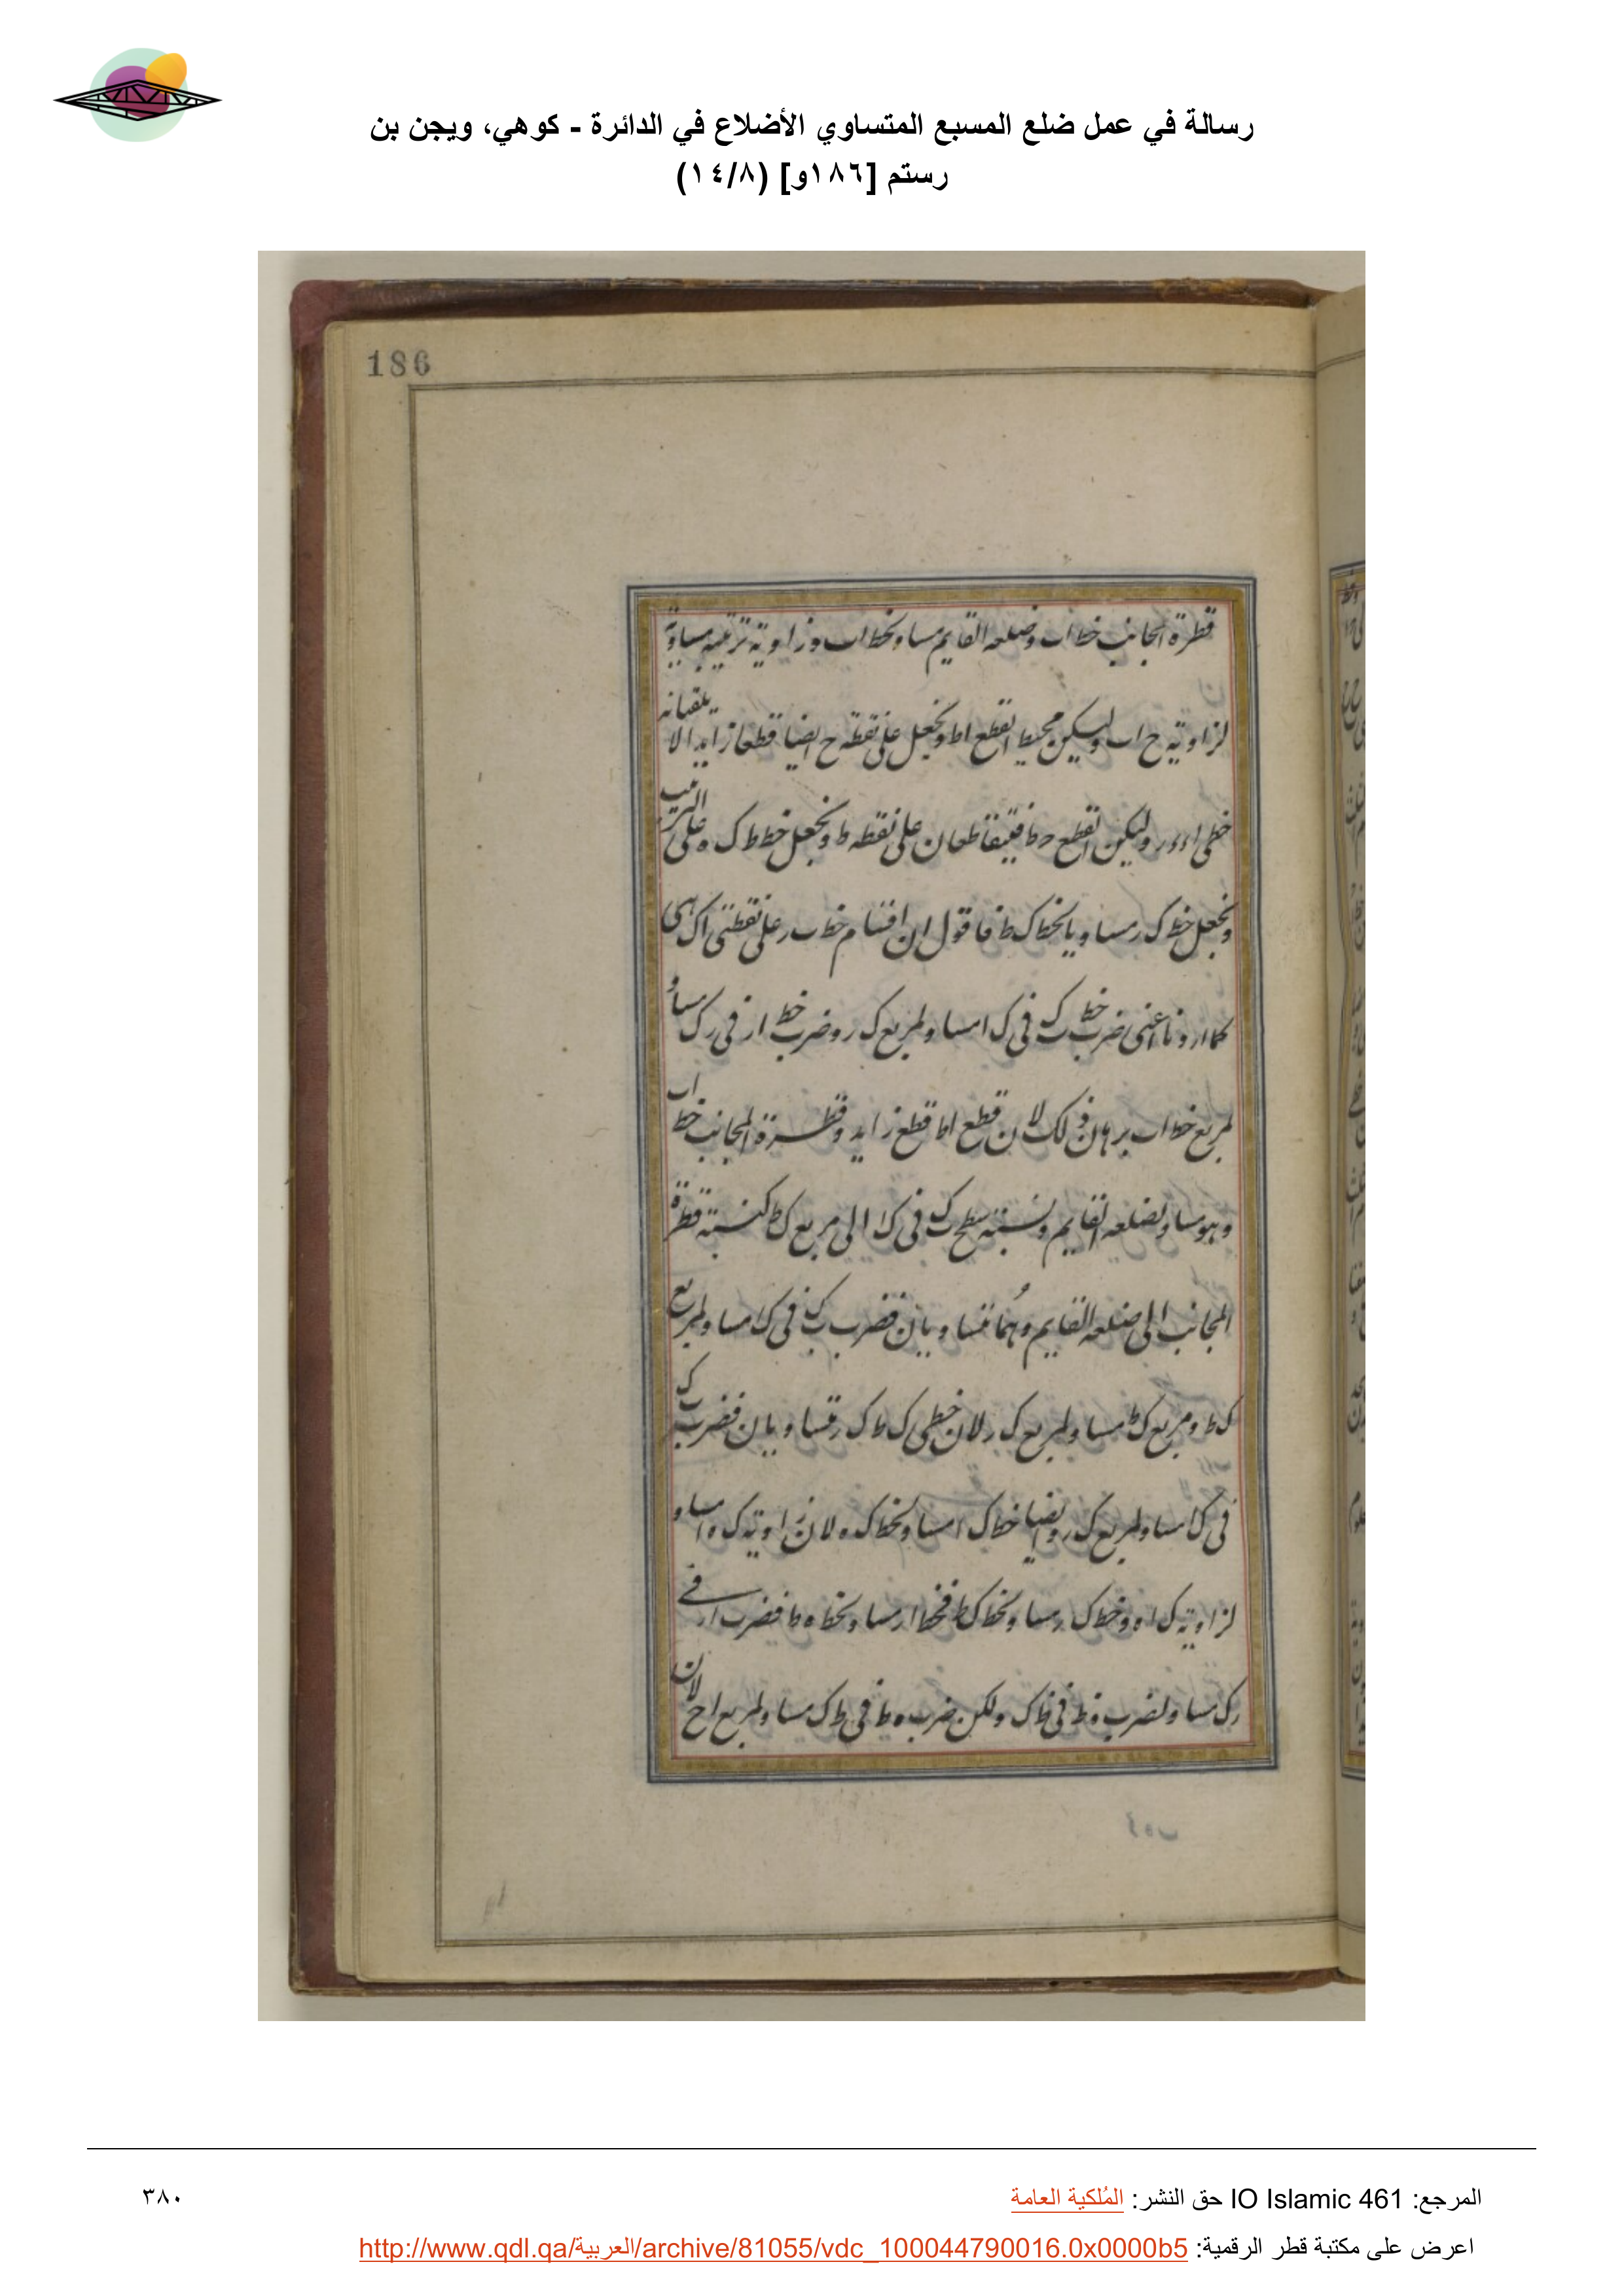 رسالة في عمل ضلع المسبع المتساوي الأضلاع في الدائرة - كوهي، ويجن بن
رستم [١٨٦و] (١٤/٨)
186
قطره المجانب خط اب وضلعه القايم مساو لخط اب وزاوية ترتيبه مساوية
لزاوية ح اب وليكن محيط القطع اط ونجعل على نقطة ح ايضا قطعا زايد الا يلقيانه
خطى اء ءر وليكن القطع حط فيتقاطعان على نقطه ط ونجعل خط ط ك ه على الترتيب
ونجعل خط ك ر مساويا لخط ك ط فاقول ان اقسام خط ب ر على نقطتى ا ك هى
كما اردنا اعنى ضرب خط ب ك فى ك ا مساو لمربع ك ر وضرب خط ار فى ر ك مساو
لمربع خط اب برهان ذلك لان قطع اط قطع زايد وقطره المجانب خط اب
وهو مساو لضلعه القايم ونسبة سطح ب ك فى ك ا الى مربع ك ط كنسبة قطره
المجانب الى ضلعه القايم وهما متساويان فضرب ب ك فى ك ا مساو لمربع
ك ط ومربع ك ط مساو لمربع ك ر لان خطى ك ط ك ر متساويان فضرب ب ك
فى ك ا مساو لمربع ك ر وايضا خط ك ا مساو لخط ك ه لان زاوية ك ه ا مساو
لزاوية ك ا ه وخط ك ر مساو لخط ك ط فخط ا ر مساو لخط ه ط فضرب ا ر فے
ر ك مساو لضرب ه ط فى ط ك ولكن ضرب ه ط فى ط ك مساو لمربع ا ح لان
المرجع: IO Islamic 461 حق النشر: المُلكية العامة
٣٨٠
اعرض على مكتبة قطر الرقمية: http://www.qdl.qa/العربية/archive/81055/vdc_100044790016.0x0000b5